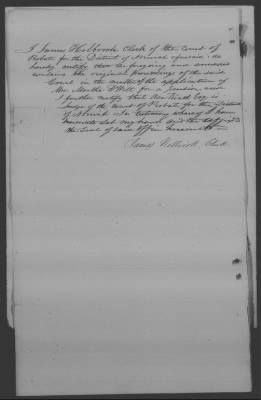 I James Holbrook Clerk of the Court of
Probate for the District of Norwich aforesaid do
hereby certify that the foregoing and annexed
contains the original proceedings of the said
Court in the matter of the application of
Mrs. Martha Witt for a pension, and
I further certify that Esq is
Judge of the Court of Probate for the District
of Norwich In testimony whereof I have
hereunto set my hand and the
the Seal of said Office hereunto
James Holbrook, Clerk